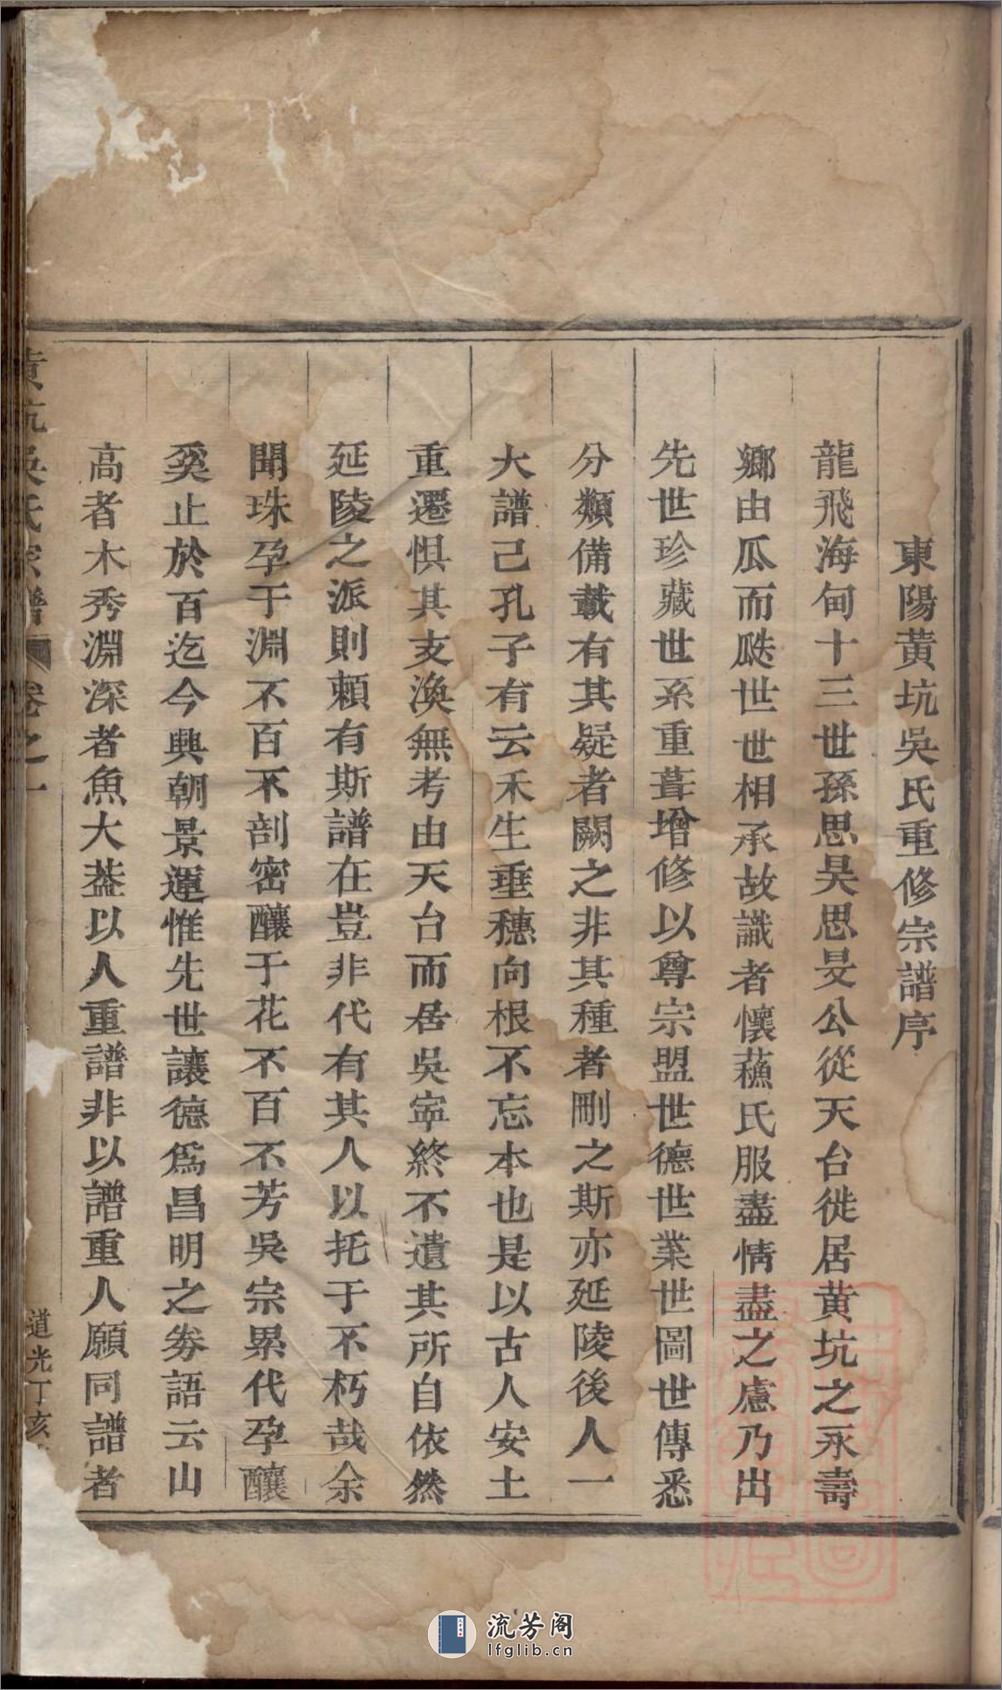 東陽黃坑吳氏重修宗譜序
龍飛海甸十三世孫思昊思旻公從天台徙居黃坑之永壽
鄉由瓜而瓞世世相承故識者懷蘓氏服盡情盡之慮乃出
先世珍藏世系重葺增修以尊宗盟世德世業世圖世傳悉
分類備載有其疑者闕之非其種者刪之斯亦延陵後人一
大譜己孔子有云禾生垂穗向根不忘本也是以古人安土
重遷惧其支渙無考由天台而居吳寧終不遺其所自依然
延陵之派則頼有斯譜在豈非代有其人以托于不朽哉余
聞珠孕于淵不百不剖密釀于花不百不芳吳宗累代孕釀
奚止於百迄今興朝景運惟先世讓德爲昌明之劵語云山
高者木秀淵深者魚大葢以人重譜非以譜重人願同譜者
黃坑吳氏宗譜 卷之一 道光丁亥
流芳阁
lfglib.cn